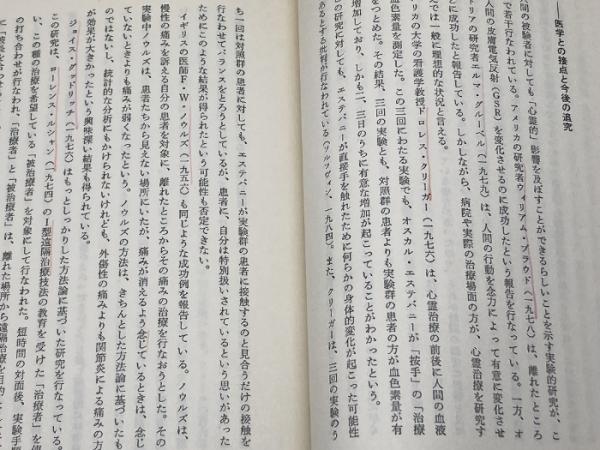 ――医学との接点と今後の追究
人間の被験者に対しても「心霊的」影響を及ぼすことができるらしいことを示す実験的研究が、こ
で若干行なわれている。アメリカの研究者ウィリアム・ブラウド（一九七八）は、離れたところ
人間の皮膚電気反射（GSR）を変化させるのに成功したという報告を行なっている。一方、オ
トリアの研究者エルマ・グルーベル（一九七九）は、人間の行動を念力によって有意に変化させ
に成功したと報告している。しかしながら、病院や実際の治療場面の方が、心霊治療を研究す
えでは一般に理想的な状況と言える。
クの大学の看護学教授ドロレス・クリーガー（一九七六）は、心霊治療の前後に人間の血液
血色素量を測定した。この三回にわたる実験でも、オスカル・エステバニーが「按手」の「治療
をつとめた。その結果、三回の実験とも、対照群の患者よりも実験群の患者の方が血色素量が有
増加しており、しかも二、三日のうちに有意な増加が起こっていることがわかったという。
の研究に対しても、エステバニーが直接手を触れたために何らかの身体的変化が起こった可能性
あるとする批判が行なわれている（一九八四）。また、クリーガーは、三回の実験のう
ち一回は対照群の患者に対しても、エステバニーが実験群の患者に接触するのと見合うだけの接触を
行なわせてバランスをとろうとしているが、患者に、自分は特別扱いされているという思いがあった
ためにこのような結果が得られたという可能性も否定できない。
イギリスの医師F・W・ノウルズ（一九五六）も同じような成功例を報告している。ノウルズは、
慢性の痛みを訴える自分の患者を対象に、離れたところからその痛みの治療を行なおうとした。この
実験中ノウルズは、患者たちから見えない場所にいたが、痛みが消えるよう念じているときは、念じ
ていないときよりも痛みが弱くなったという。ノウルズの方法は、きちんとした方法論に基づいたも
のではないし、統計的な分析にもかけられないけれども、外傷性の痛みよりも関節炎による痛みの方
が効果が大きかったという興味深い結果も得られている。
ジョイス・グッドリッチ（一九七六）はもっとしっかりした方法論に基づいた研究を行なっている。
この研究は、ローレンス・ルシャン（一九七四）のI型遠隔治療技法の教育を受けた「治療者」を使
い、この種の治療を希望している「被治療者」を対象にして行なわれた。短時間の対面後、実験手順
の打ち合わせが行なわれ、「治療者」と「被治療者」は、離れた場所から遠隔治療を目的と